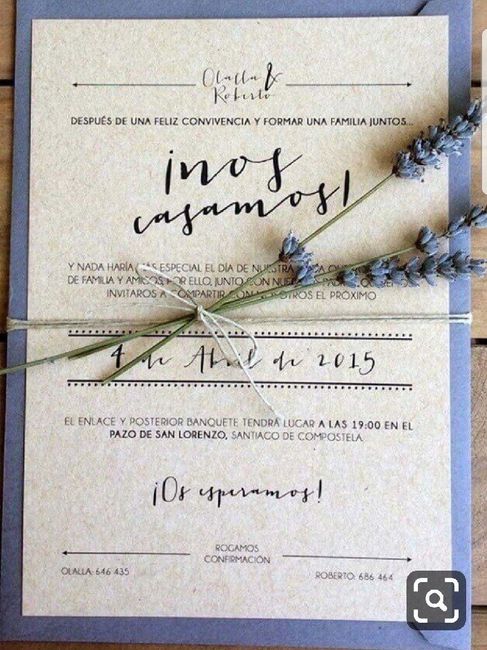 Olalla &
Roberto
DESPUÉS DE UNA FELIZ CONVIVENCIA Y FORMAR UNA FAMILIA JUNTOS...
¡nos
casamos!
Y NADA HARÍA MÁS ESPECIAL EL DÍA DE NUESTRA
DE FAMILIA Y AMIGOS. POR ELLO, JUNTO CON
INVITAROS A COMPARTIR CON NOSOTROS EL PRÓXIMO
4 de Abril de 2015
EL ENLACE Y POSTERIOR BANQUETE TENDRÁ LUGAR A LAS 19:00 EN EL
PAZO DE SAN LORENZO, SANTIAGO DE COMPOSTELA.
¡Os esperamos!
ROGAMOS
CONFIRMACIÓN
OLALLA: 646 435
ROBERTO: 686 464